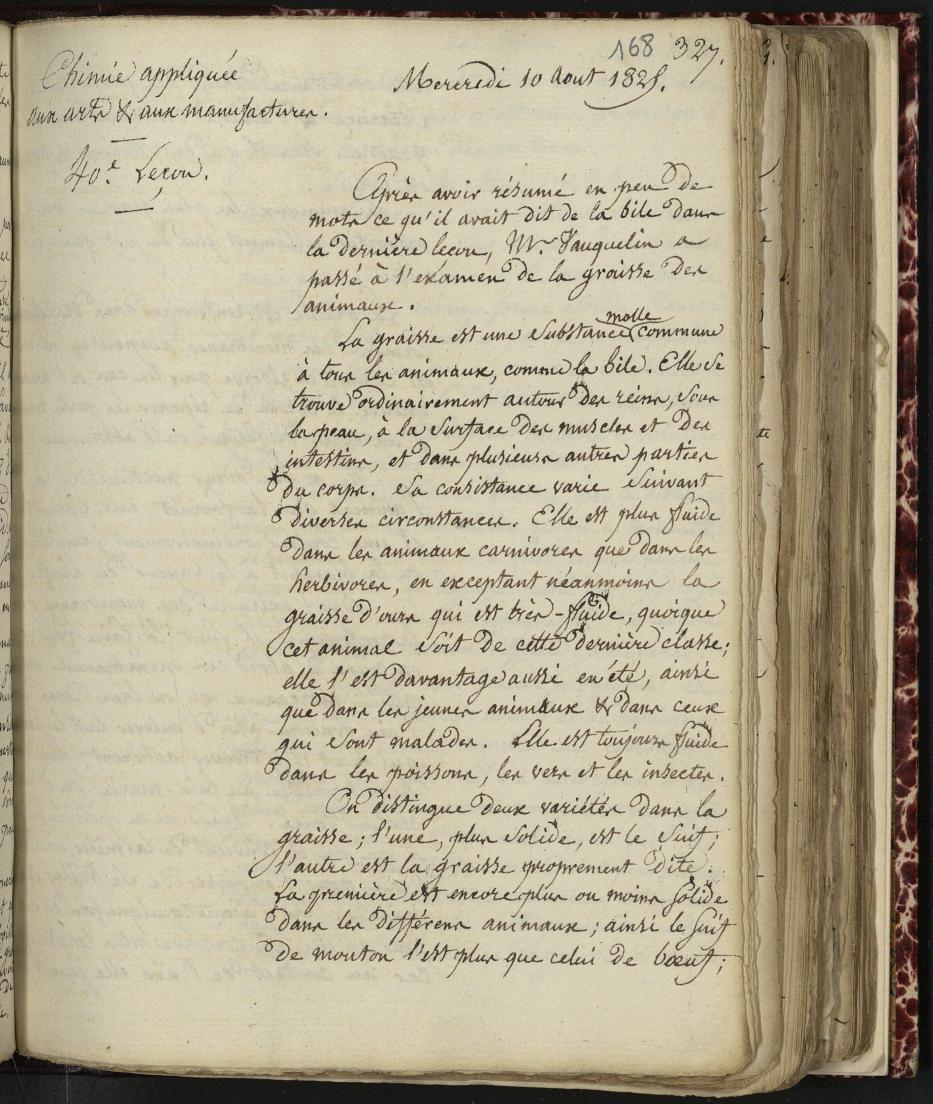 168 327.
Chimie appliquée
aux arts & aux manufactures.
Mercredi 10 Aout 1825.
40.e Leçon.
Après avoir résumé en peu de
mots ce qu'il avait dit de la bile dans
la dernière leçon, Mr. Vauquelin a
passé à l'examen de la graisse des
animaux.
La graisse est une substance molle commune
à tous les animaux, comme la bile. Elle se
trouve ordinairement autour des reins, sous
la peau, à la surface des muscles et des
intestins, et dans plusieurs autres parties
du corps. Sa consistance varie suivant
diverses circonstances. Elle est plus fluide
dans les animaux carnivores que dans les
herbivores, en exceptant néanmoins la
graisse d'ours qui est très-fluide, quoique
cet animal soit de cette dernière classe;
elle l'est davantage aussi en été, ainsi
que dans les jeunes animaux & dans ceux
qui sont malades. Elle est toujours fluide
dans les poissons, les vers et les insectes.
On distingue deux variétés dans la
graisse; l'une, plus solide, est le suif;
l'autre est la graisse proprement dite.
La première est encore plus ou moins solide
dans les différens animaux; ainsi le suif
de mouton l'est plus que celui de bœuf;